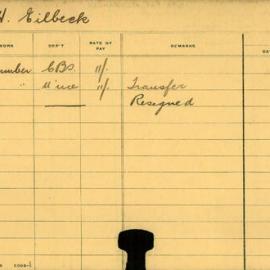 H. Eilbeck
WORK DEP'T RATE OF PAY REMARKS DA
umber CBs. 11/.
" 11/. Transfer
Resigned